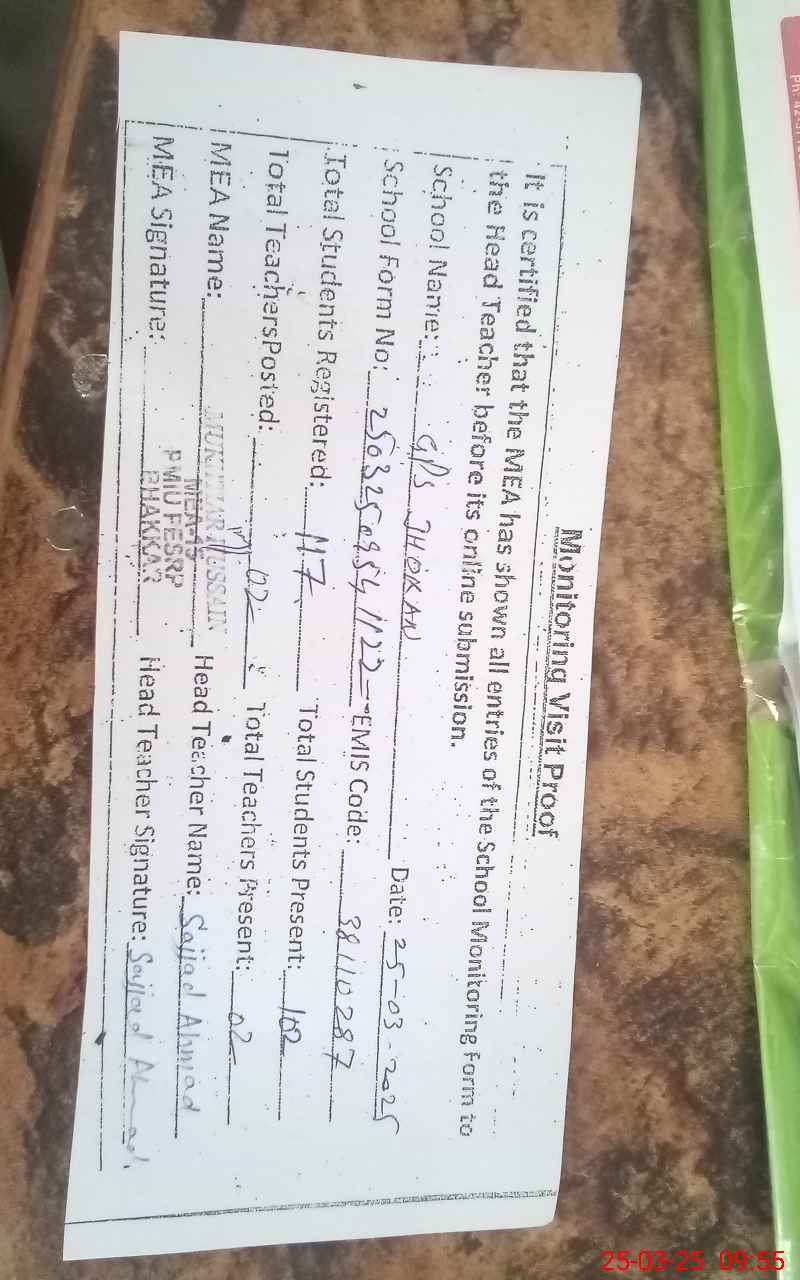 Monitoring Visit Proof
It is certified that the MEA has shown all entries of the School Monitoring Form to
the Head Teacher before its online submission.
School Name: GPS JHOKAN Date: 25-03-2025
School Form No: EMIS Code: 38110287
Total Students Registered: 117 Total Students Present: 102
Total Teachers Posted: 02 Total Teachers Present: 02
MEA Name: HUSSAIN Head Teacher Name: Sajjad Ahmad
MEA-15
PMU PESRP
BHAKKAR
MEA Signature: Head Teacher Signature: Sajjad Ahmad
25-03-25 09:55